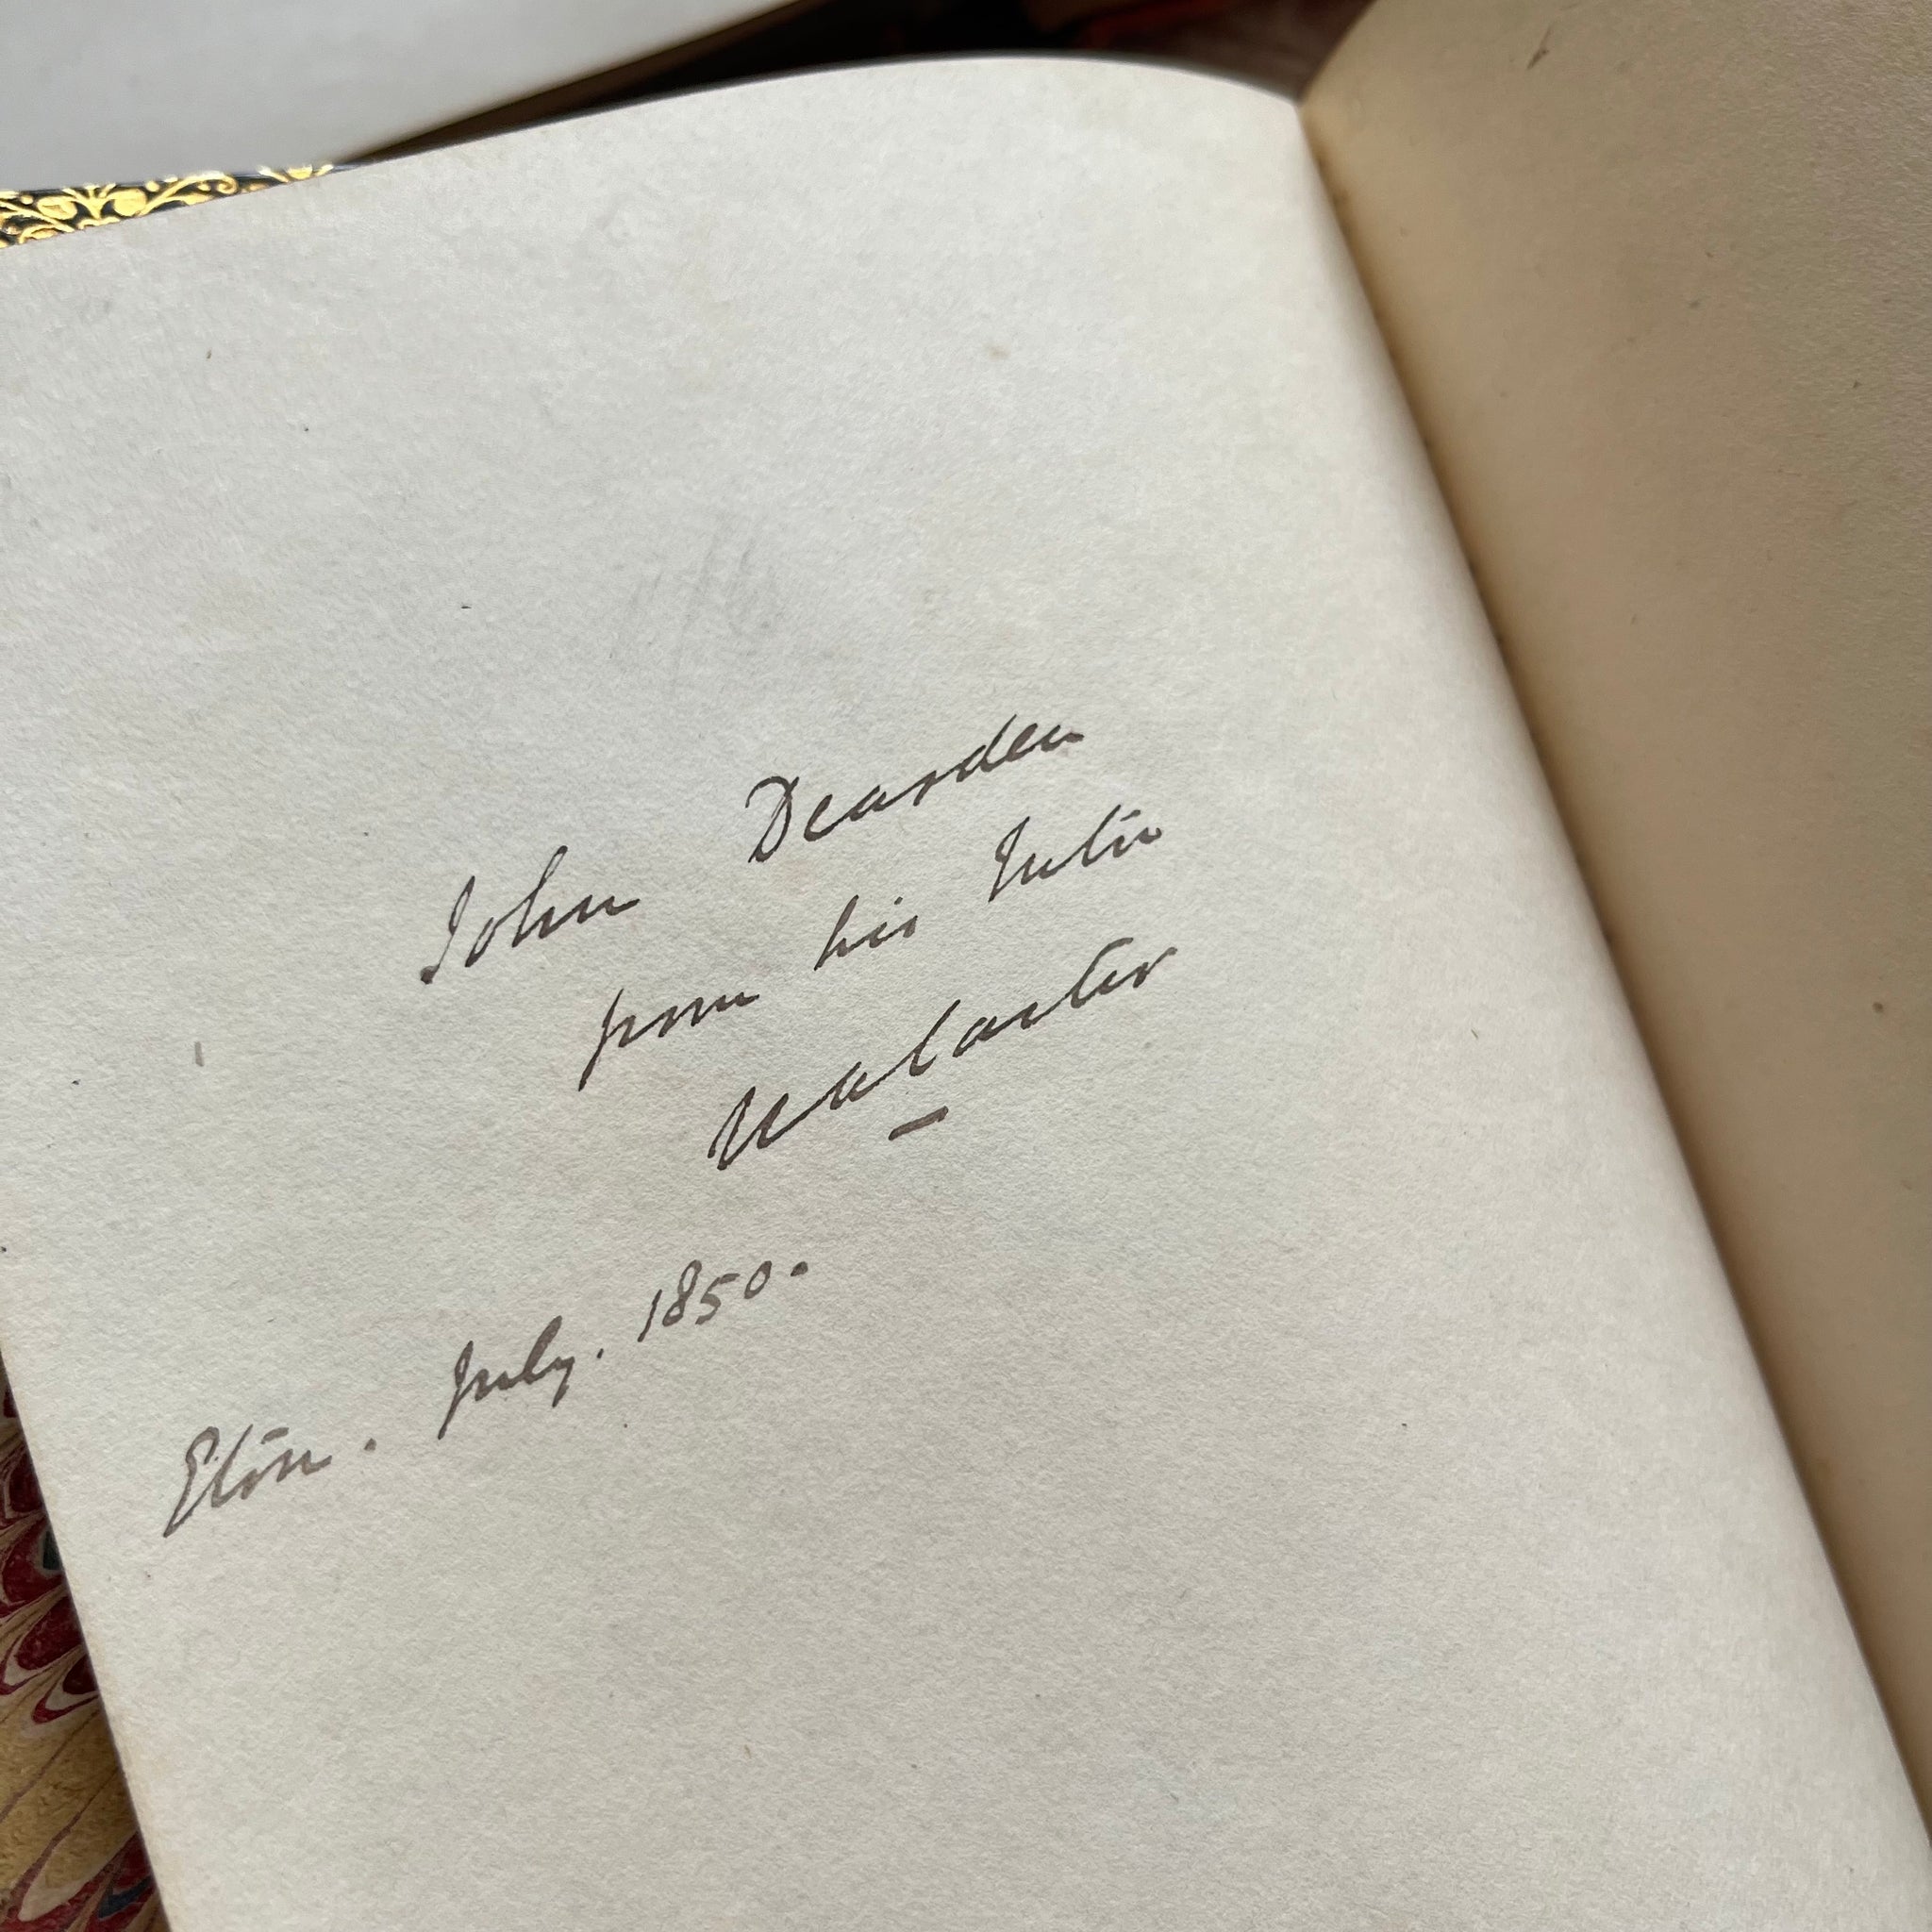 John Dearden
from his Tutor
WACarter
Eton. July. 1850.